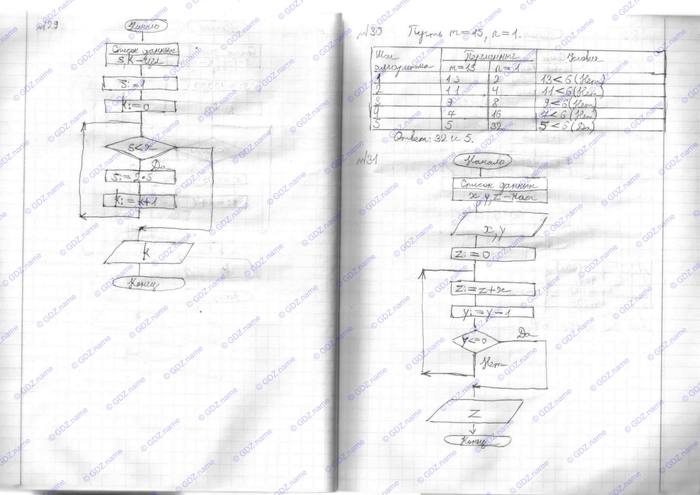 №29
Начало
Список данных
s, k - цел
s:=1
k:=0
s<x
Да
s:=2*s
k:=k+1
k
Конец
№30 Пусть m=15, n=1.
Шаг алгоритма
Переменные
Условие
m=15 n=1
1 13 2 13<6 (Нет)
2 11 4 11<6 (Нет)
3 9 8 9<6 (Нет)
4 7 16 7<6 (Нет)
5 5 32 5<6 (Да)
Ответ: 32 и 5.
№31
Начало
Список данных
x, y, z -
x, y
z:=0
z:=z+x
y:=y-1
y<=0
Да
Нет
z
Конец
© GDZ.name